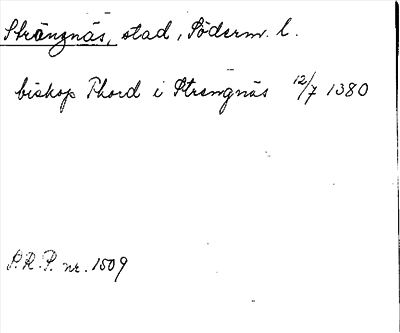 Strängnäs, stad, Söderm. l.
biskop Thord i Strengnäs 12/7 1380
P.R.P. nr. 1509